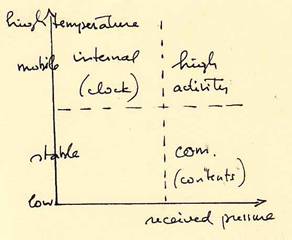 high temperature
mobile
internal
(clock)
high
activity
stable
com.
(contents)
low
received pressure